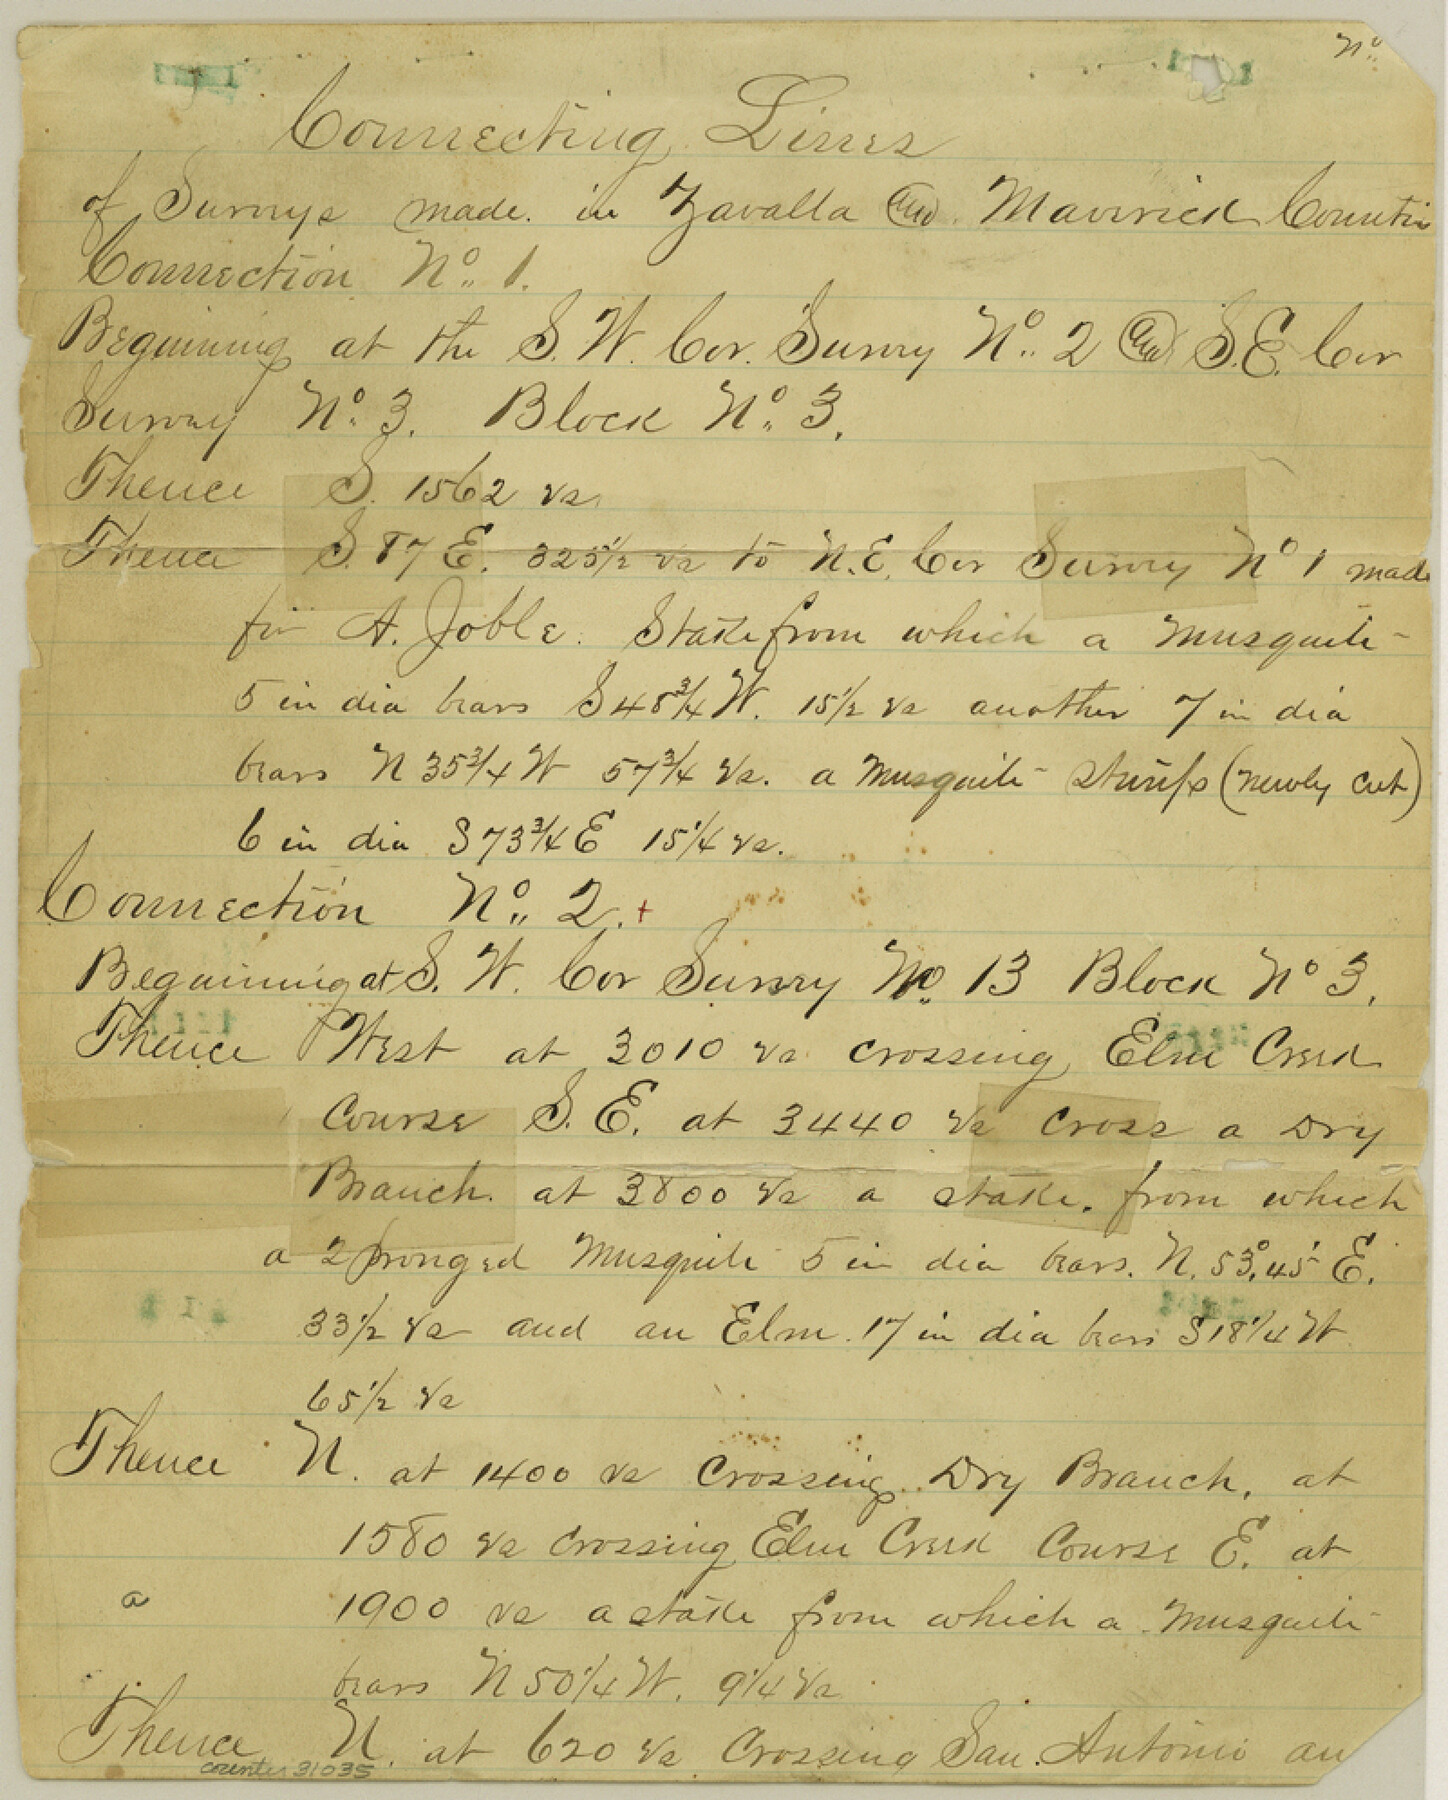 No
Connecting Lines
of Surveys made. in Zavalla and Maverick Countie
Connection No. 1.
Beginning at the S. W. Cor. Survey No. 2 and S.E. Cor
Survey No. 3. Block No. 3.
Thence S. 1562 vs.
Thence S. 87 E. 325 1/2 vs to N.E. Cor Survey No 1 made
for A. Joble. Stake from which a Musquite
5 in dia bears S 48 3/4 W. 15 1/2 vs another 7 in dia
bears N 35 3/4 W 57 3/4 vs. a Musquite Stump (newly cut)
6 in dia S 73 3/4 E 15 1/4 vs.
Connection No. 2. +
Beginning at S. W. Cor Survey No. 13 Block No 3.
Thence West at 3010 vs crossing Elm Creek
Course S. E. at 3440 vs cross a Dry
Branch. at 3800 vs a stake. from which
a 2 pronged Musquite 5 in dia bears. N. 53°.45' E.
33 1/2 vs and an Elm. 17 in dia bears S 18 1/4 W
65 1/2 vs
Thence N. at 1400 vs Crossing Dry Branch, at
1580 vs crossing Elm Creek Course E. at
a 1900 vs a stake from which a Musquite
bears N 50 1/4 W. 9 1/4 vs
Thence N. at 620 vs Crossing San. Antonio an
counter 31035